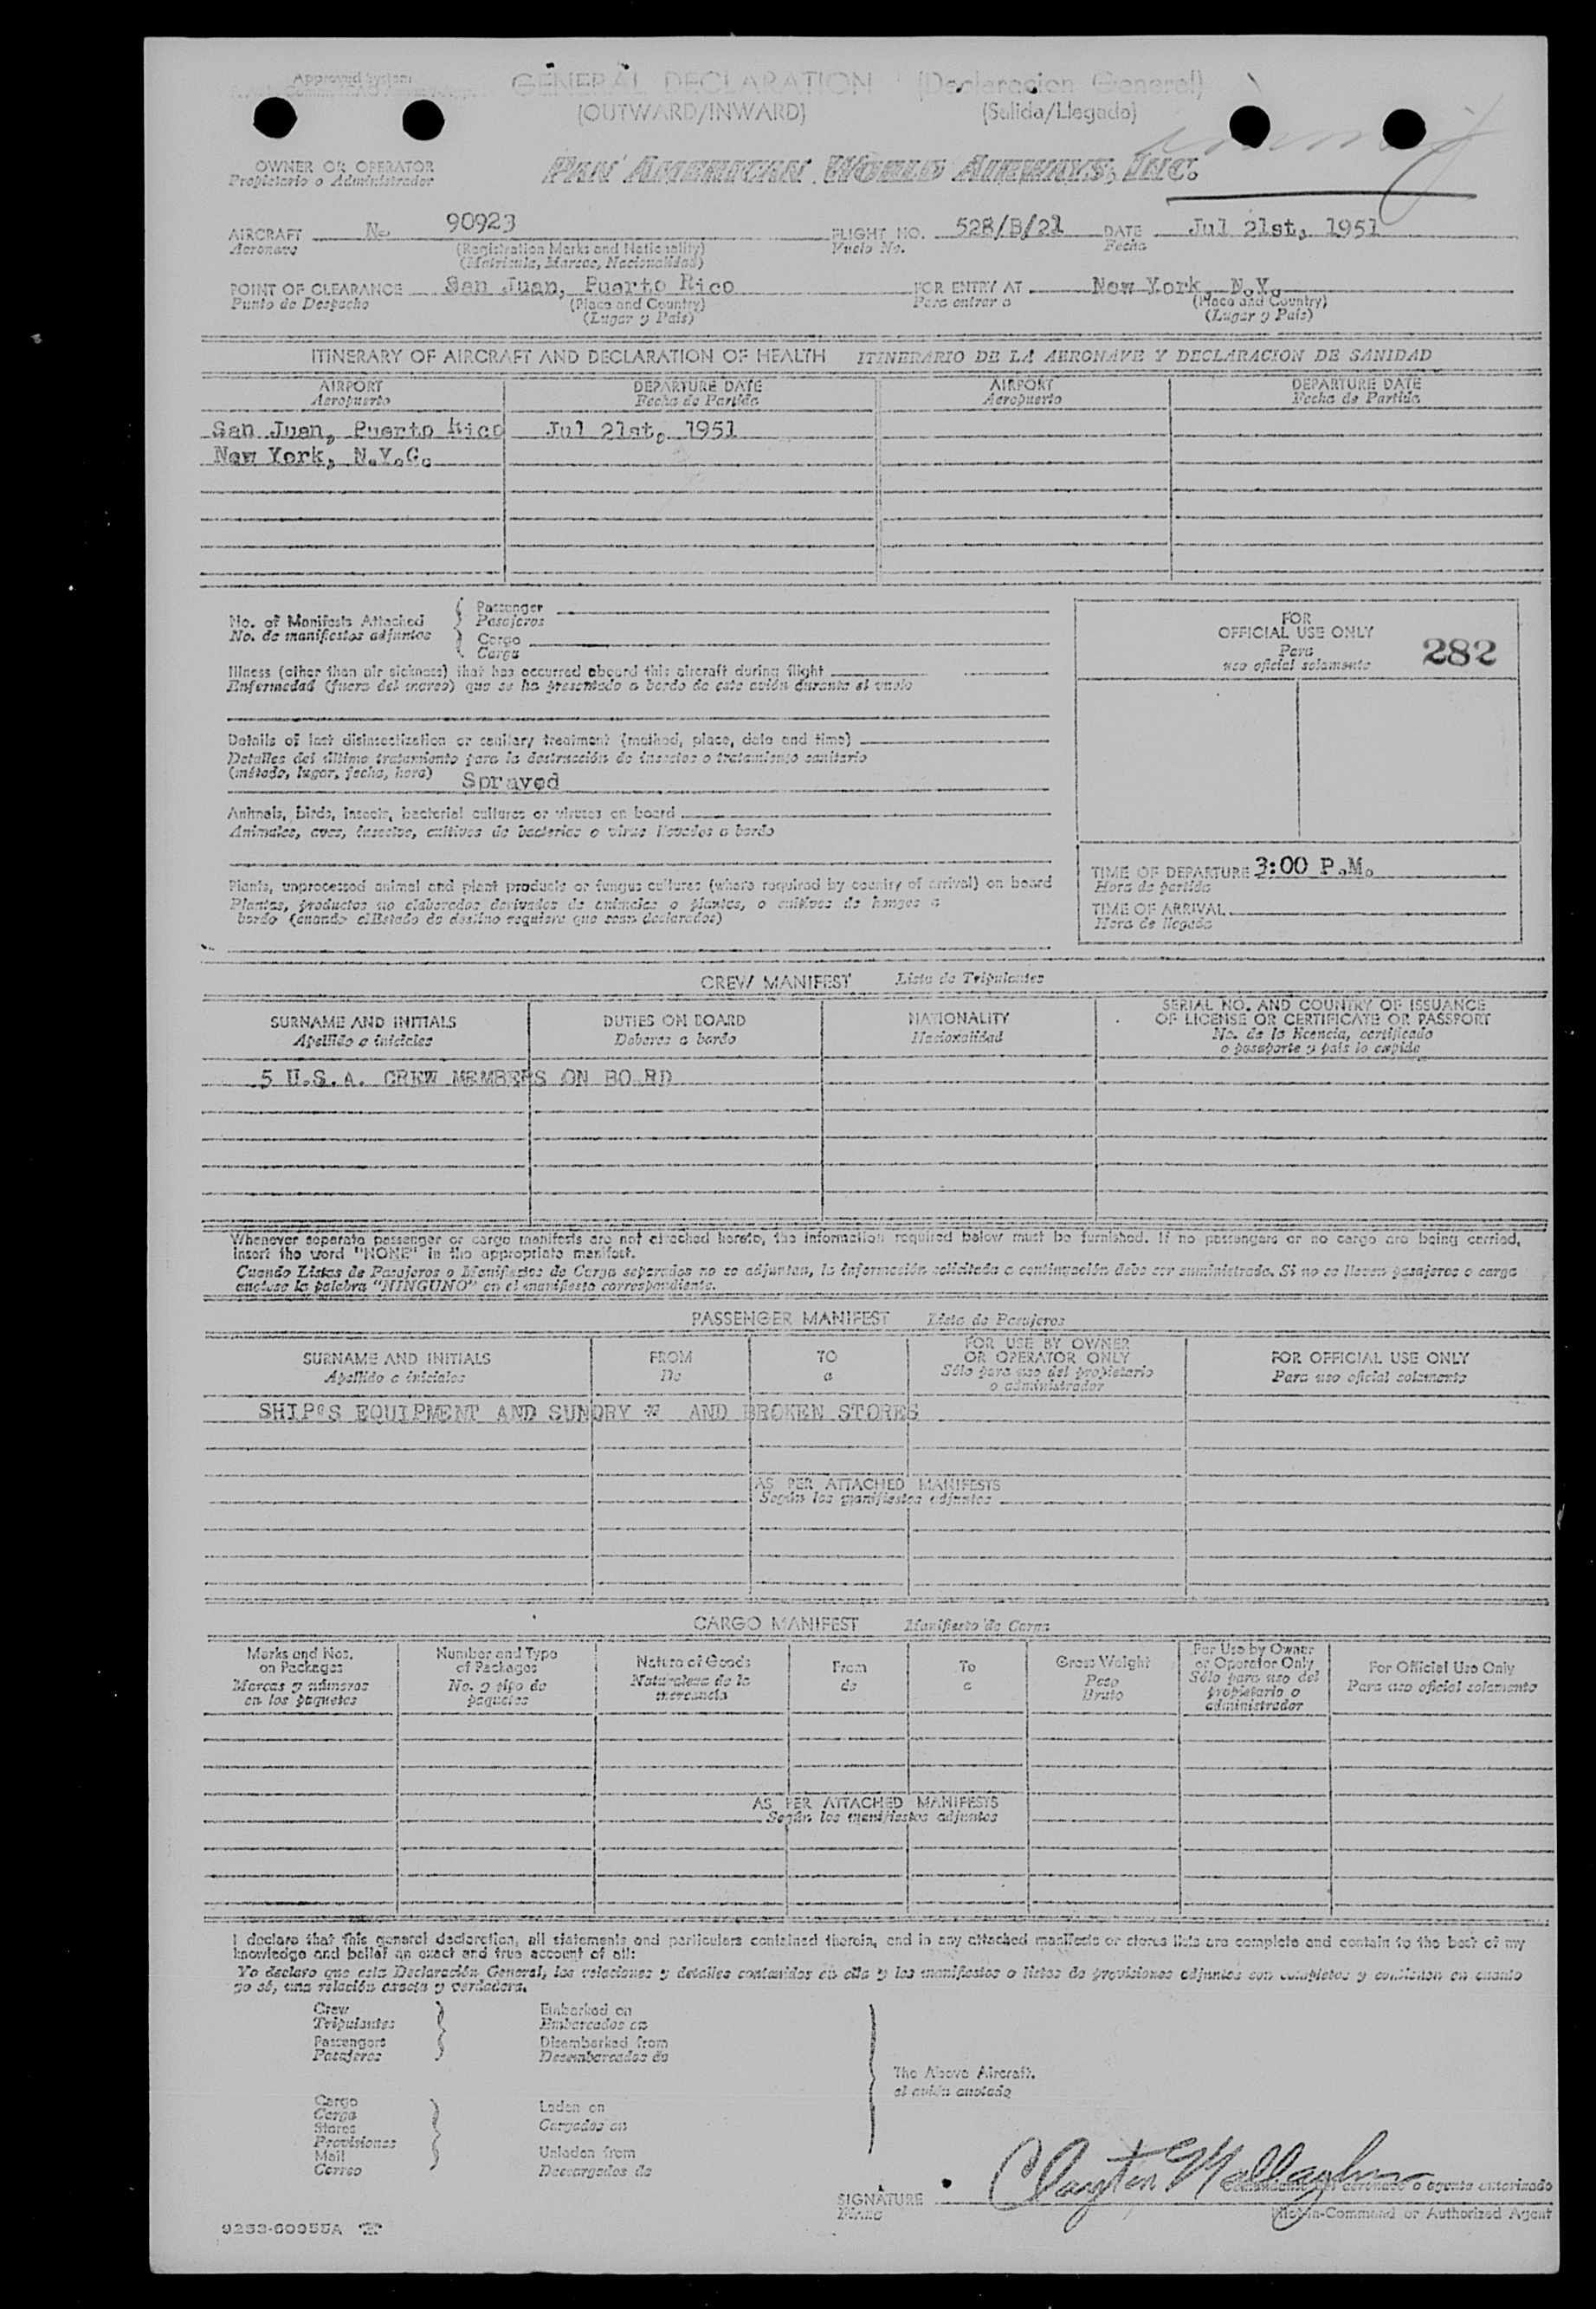 Approved System
GENERAL DECLARATION (Declaracion General)
(OUTWARD/INWARD) (Salida/Llegada)
OWNER OR OPERATOR
Propietario o Administrador
PAN AMERICAN WORLD AIRWAYS, INC.
AIRCRAFT N- 90923 FLIGHT NO. 528/B/21 DATE Jul 21st, 1951
Aeronave (Registration Marks and Nationality) Vuelo No. Fecha
(Matricula, Marcas, Nacionalidad)
POINT OF CLEARANCE San Juan, Puerto Rico FOR ENTRY AT New York, N.Y.
Punto de Despacho (Place and Country) Para entrar a (Place and Country)
(Lugar y Pais) (Lugar y Pais)
ITINERARY OF AIRCRAFT AND DECLARATION OF HEALTH ITINERARIO DE LA AERONAVE Y DECLARACION DE SANIDAD
AIRPORT DEPARTURE DATE AIRPORT DEPARTURE DATE
Aeropuerto Fecha de Partida Aeropuerto Fecha de Partida
San Juan, Puerto Rico Jul 21st, 1951
New York, N.Y.C.
No. of Manifests Attached Passenger
No. de manifiestos adjuntos Pasajeros
Cargo
Carga
FOR
OFFICIAL USE ONLY
Para
uso oficial solamente
282
Illness (other than air sickness) that has occurred aboard this aircraft during flight
Enfermedad (fuera del mareo) que se ha presentado a bordo de este avión durante el vuelo
Details of last disinsectization or sanitary treatment (method, place, date and time)
Detalles del último tratamiento para la destrucción de insectos o tratamiento sanitario
(método, lugar, fecha, hora) Sprayed
Animals, birds, insects, bacterial cultures or viruses on board
Animales, aves, insectos, cultivos de bacterias o virus llevados a bordo
Plants, unprocessed animal and plant products or fungus cultures (where required by country of arrival) on board
Plantas, productos no elaborados derivados de animales o plantas, o cultivos de hongos a
bordo (cuando el Estado de destino requiera que sean declarados)
TIME OF DEPARTURE 3:00 P.M.
Hora de partida
TIME OF ARRIVAL
Hora de llegada
CREW MANIFEST Lista de Tripulantes
SURNAME AND INITIALS DUTIES ON BOARD NATIONALITY SERIAL NO. AND COUNTRY OF ISSUANCE
OF LICENSE OR CERTIFICATE OR PASSPORT
Apellido e iniciales Deberes a bordo Nacionalidad No. de la licencia, certificado
o pasaporte y pais lo expide
5 U.S.A. CREW MEMBERS ON BO RD
Whenever separate passenger or cargo manifests are not attached hereto, the information required below must be furnished. If no passengers or no cargo are being carried,
insert the word "NONE" in the appropriate manifest.
Cuando Listas de Pasajeros o Manifiestos de Carga separados no se adjuntan, la información solicitada a continuación debe ser suministrada. Si no se llevan pasajeros o carga
anotese la palabra "NINGUNO" en el manifiesto correspondiente.
PASSENGER MANIFEST Lista de Pasajeros
SURNAME AND INITIALS FROM TO FOR USE BY OWNER
OR OPERATOR ONLY FOR OFFICIAL USE ONLY
Apellido e iniciales De a Sólo para uso del propietario
o administrador Para uso oficial solamente
SHIP'S EQUIPMENT AND SUNDRY AND BROKEN STORES
AS PER ATTACHED MANIFESTS
Según los manifiestos adjuntos
CARGO MANIFEST Manifiesto de Carga
Marks and Nos.
on Packages
Marcas y números
en los paquetes
Number and Type
of Packages
No. y tipo de
paquetes
Nature of Goods
Naturaleza de la
mercancia
From
de
To
a
Gross Weight
Peso
Bruto
For Use by Owner
or Operator Only
Sólo para uso del
propietario o
administrador
For Official Use Only
Para uso oficial solamente
AS PER ATTACHED MANIFESTS
Según los manifiestos adjuntos
I declare that this general declaration, all statements and particulars contained therein, and in any attached manifests or stores lists are complete and contain to the best of my
knowledge and belief an exact and true account of all:
Yo declaro que esta Declaración General, las relaciones y detalles contenidos en ella y los manifiestos o listas de provisiones adjuntos son completos y contienen en cuanto
yo sé, una relación exacta y verdadera.
Crew
Tripulantes
Passengers
Pasajeros
Embarked on
Embarcados en
Disembarked from
Desembarcados de
The Above Aircraft.
el avión anotado
Cargo
Carga
Stores
Provisiones
Mail
Correo
Laden on
Cargados en
Unladen from
Descargados de
SIGNATURE Clayton
Firma
Comandante del aeronave o agente autorizado
Pilot-in-Command or Authorized Agent
9233-60955A